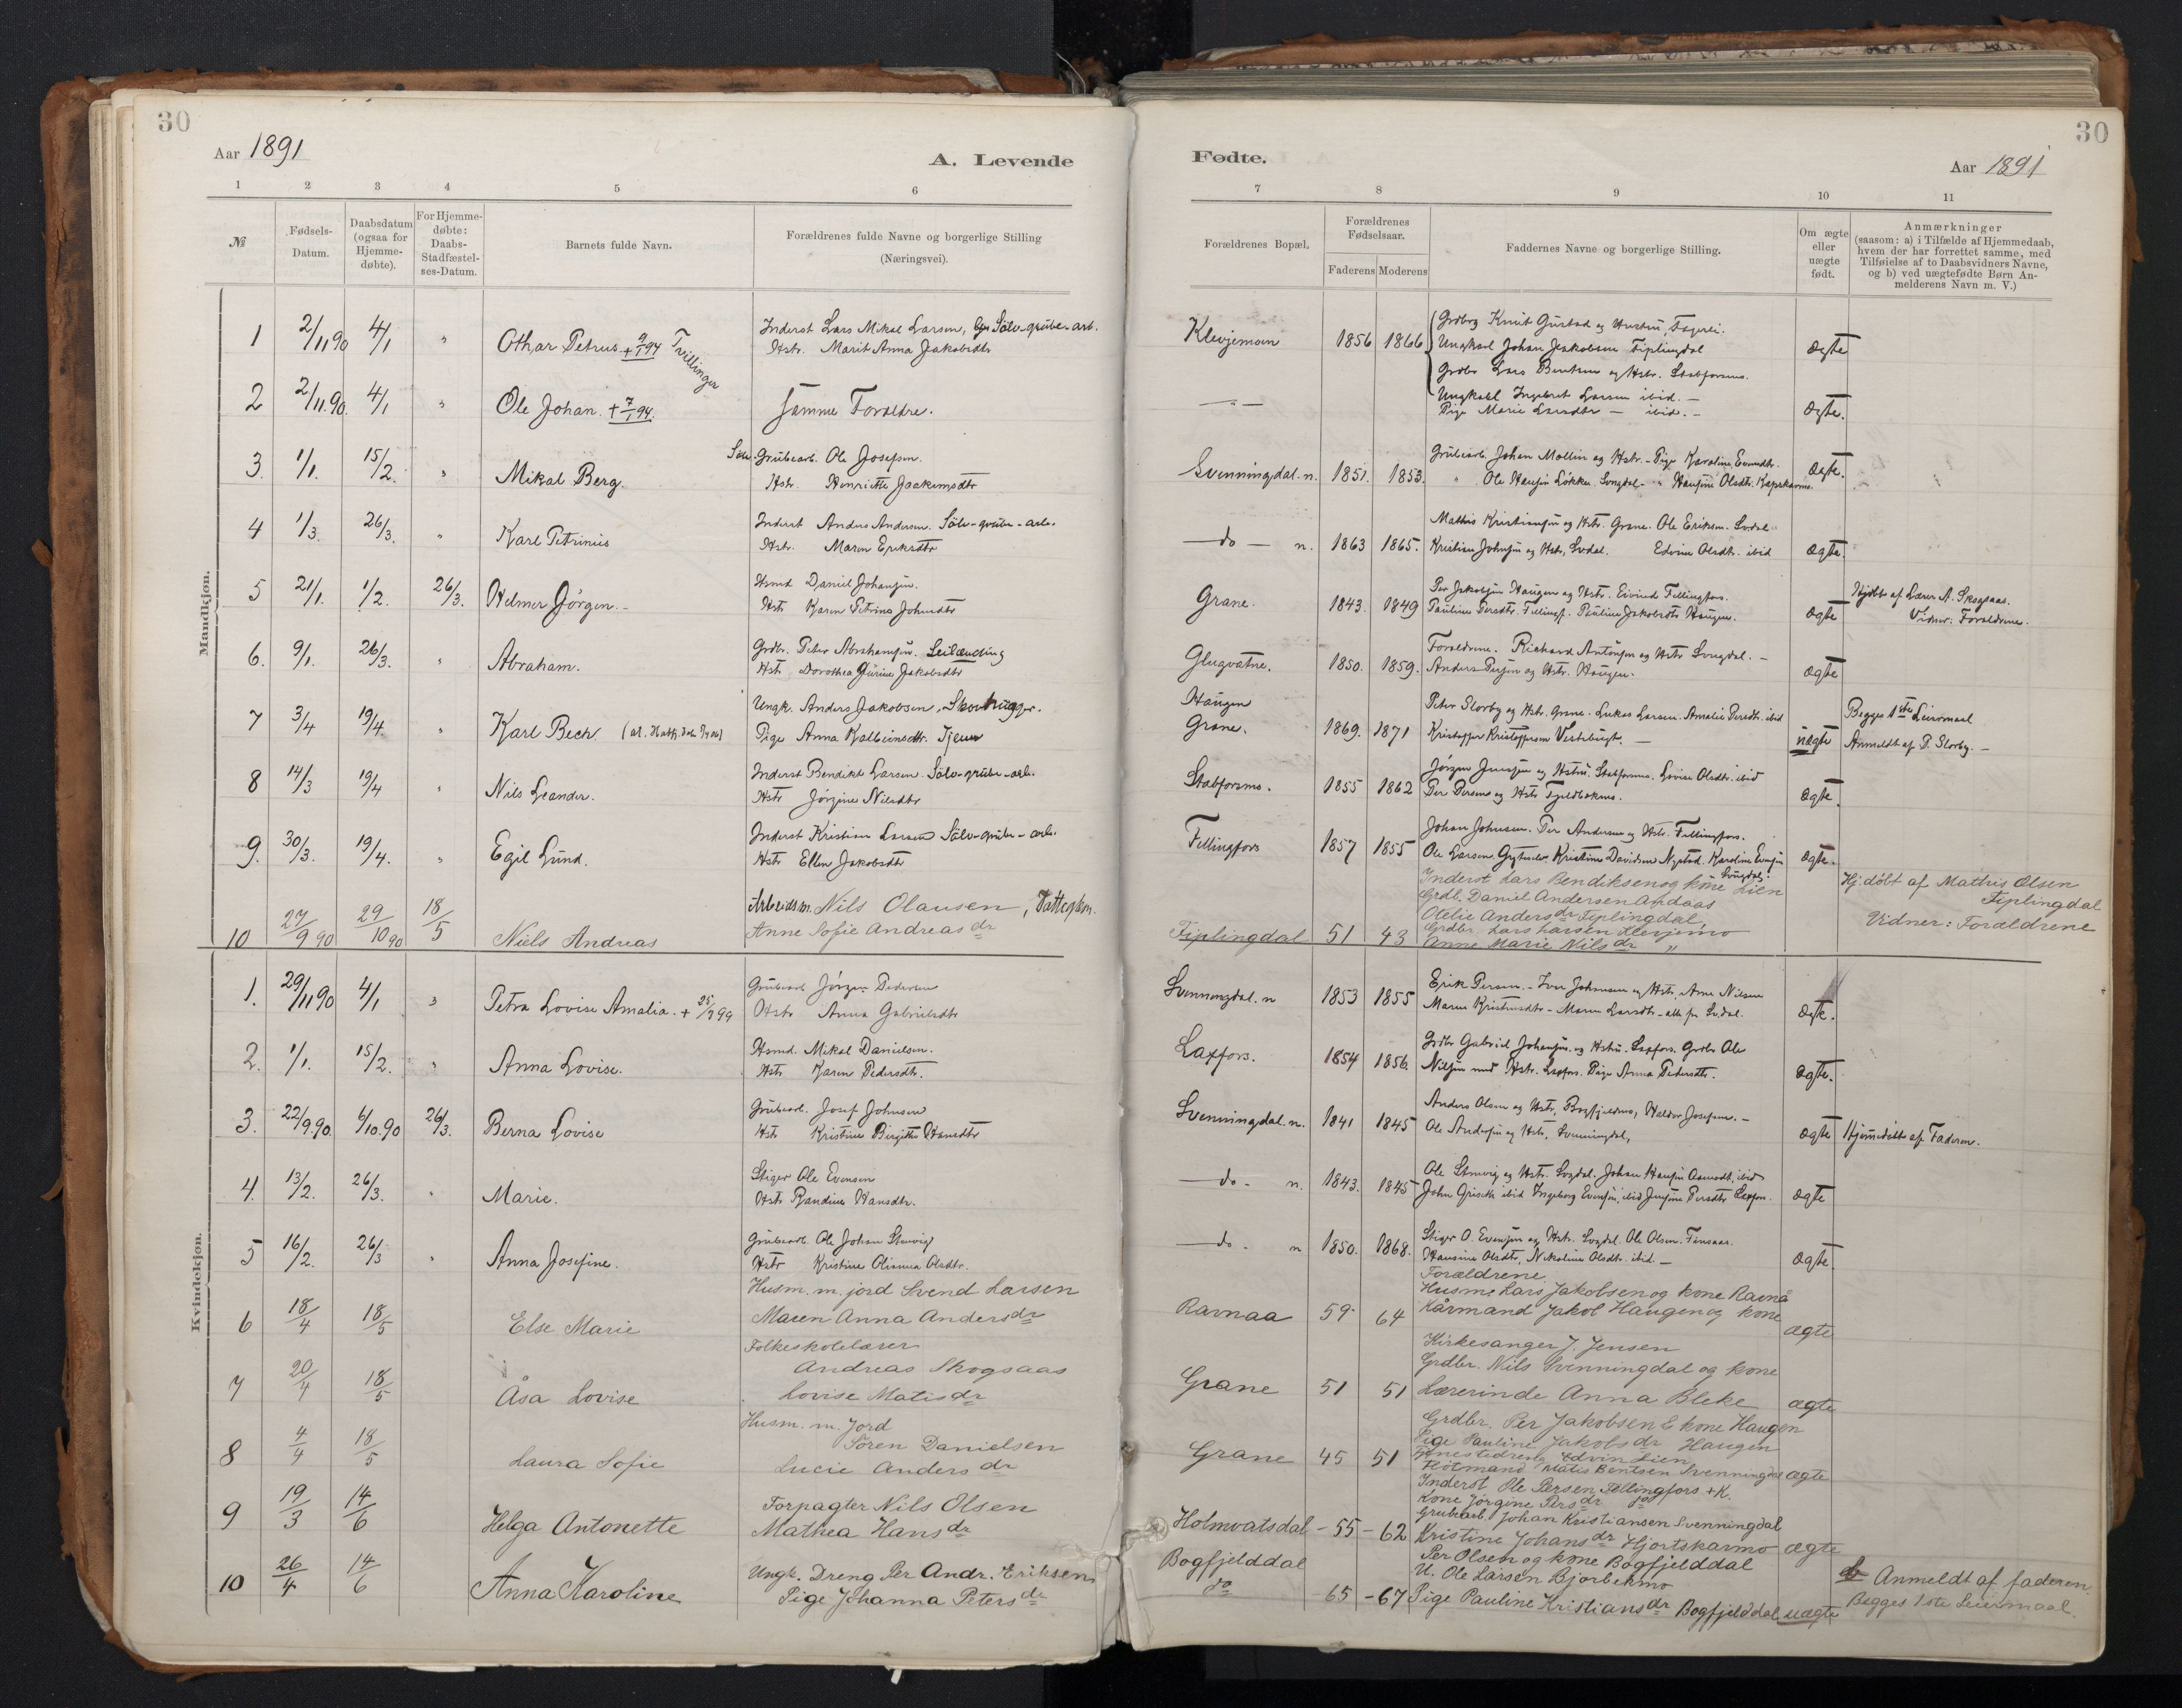 30
Aar 1891
A. Levende
1 2 3 4 5 6
№
Fødsels-Datum.
Daabsdatum (ogsaa for Hjemme-døbte).
For Hjemme-døbte: Daabs-Stadfæstel-ses-Datum.
Barnets fulde Navn.
Forældrenes fulde Navne og borgerlige Stilling
(Næringsvei).
Mandkjøn.
1 2/11 90 4/1 " Othar Petrus + 9/1 94 Tvillinger Inderst Lars Mikal Larsen, Sölv-grube-arb.
Hstr. Marit Anna Jakobsdtr
2 2/11.90. 4/1 " Ole Johan. + 7/1 94. Samme Forældre.
3. 1/1. 15/2. " Mikal Berg. Sölv. Grubearb. Ole Josefsen.
Hstr. Henriette Joakimsdtr
4 1/3. 26/3. " Karl Petrinius Inderst Anders Andersen. Sölv-grube-arb.
Hstr. Maren Eriksdtr
5 21/1. 1/2. 26/3. Helmer Jörgen.- Hsmd Daniel Johansen.
Hstr Karen Petrina Johnsdtr
6. 9/1. 26/3. " Abraham. Grdbr. Peter Abrahamsen. Leilænding
Hstr Dorothea Gurine Jakobsdtr
7 3/4 19/4. " Karl Bech Ungk. Anders Jakobsen, Skovhugger.
Pige Anna Kolbeinsdtr. Tjener
8 14/3 19/4 " Nils Leander. Inderst Bendikt Larsen. Sölv-grube-arb.
Hstr Jörgine Nilsdtr
9. 30/3. 19/4. " Egil Lund. Inderst Kristian Larsen Sölv-grube-arb.
Hstr Ellen Jakobsdtr
10 27/9 90 29/10 90 18/5 Niels Andreas Arbeidsm. Nils Olausen, Fattiglem.
Anne Sofie Andreasdr
Kvindekjøn.
1. 29/11 90 4/1 " Petra Lovise Amalia. + 25/7 99 Grubearb Jörgen Pedersen
Hstr Anna Gabrielsdtr
2. 1/1. 15/2. " Anna Lovise. Hsmd. Mikal Danielsen.
Hstr Karen Pedersdtr.
3. 22/9.90. 6/10.90 26/3. Berna Lovise Grubearb. Josef Johnsen
Hstr Kristine Birgitte Hansdtr
4. 13/2. 26/3. " Marie. Stiger Ole Evensen
Hstr Randine Hansdtr.
5 16/2. 26/3 " Anna Josefine. Grubearb. Ole Johan Stenvig
Hstr Kristine Olianna Olsdtr.
6 18/4 18/5 Else Marie Husm. m. jord Svend Larsen
Maren Anna Andersdr
7 20/4 18/5 Åsa Lovise Folkeskolelærer
Andreas Skogsaas
Lovise Matisdr
8 4/4 18/5 Laura Sofie Husm. m. Jord
Sören Danielsen
Lucie Andersdr
9 19/3 14/6 Helga Antonette Forpagter Nils Olsen
Mathea Hansdr
10 26/4 14/6 Anna Karoline Ungk. Dreng Per Andr. Eriksen
Pige Johanna Petersdr
Fødte.
30
Aar 1891
7 8 9 10 11
Forældrenes Bopæl.
Forældrenes Fødselsaar.
Faderens Moderens
Faddernes Navne og borgerlige Stilling.
Om ægte eller uægte født.
Anmærkninger
(saasom: a) i Tilfælde af Hjemmedaab,
hvem der har forrettet samme, med
Tilføielse af to Daabsvidners Navne,
og b) ved uægtefødte Børn An-
melderens Navn m. V.)
Klevjemoen 1856 1866 Knut
Ungkarl Johan Jakobsen Fiplingdal
Grdbr Lars Bentsen og Hstr. Stabforsmo. ægte
Ungkarl Ingebret Larsen ibid. -
Pige Marie Larsdtr - ibid. - ægte.
Svenningdal. n. 1851. 1853. Grubearb. Johan Mollin og Hstr. - Pige Karoline
" Ole Hansen Løkken Svngdal - " Hansine Olsdtr. ægte.
do n. 1863 1865. Mathis Kristiansen og Hstr. Grane. Ole Eriksen. Svdal.
Kristian Johnsen og Hstr, Svdal. Edvine Olsdtr. ibid ægte.
Grane. 1843. 1849 Per Jakobsen Haugen og Hstr. Eivind Fellingfors.
Pauline Persdtr. Fellingf. Pauline Jakobsdtr Haugen. ægte Hjdöbt af Lærer A. Skogsaas.
Vidner: Forældrene.
Glugvatne. 1850. 1859. Forældrene. Richard Antonsen og Hstr Svngdal. -
Anders Persen og Hstr. Haugen. ægte
Haugen
Grane. 1869. 1871 Peter Slorby og Hstr. Grane. Lukas Larsen. Amalie Persdtr. ibid
Kristoffer Kristoffersen Vesterbugt. - uægte Begges 1ste Leiermaal
Anmeldt af P. Slorby. -
Stabforsmo. 1855 1862 Jörgen Jensen og Hstru. Stabforsmo. Lovise Olsdtr. ibid
Per Persen og Hstr Fjeldbækmo. ægte.
Fellingfors 1857 1855 Johan Johnsen. Per Andersen og Hstr. Fellingfors.
Ole Larsen Kristine Davidsen Nystad. Karoline Svngdal. ægte.
Fiplingdal 51 43 Inderst Lars Bendiksen og kone Lien
Grdb. Daniel Andersen Andaas
Otelie Andersdr Fiplingdal,
Grdbr. Lars Larsen Klevjemo
Anne Marie Nilsdr "
Hj. döbt af Mathis Olsen
Fiplingdal
Vidner: Forældrene
Svenningdal. n 1853 1855 Erik Persen. - Iver Johnsen og Hstr. Arne Nilsen
Maren Kristensdtr - Maren Larsdtr - alle fra Sv.dal. ægte.
Laxfors. 1854 1856. Grdbr Gabriel Johansen. og Hstru. Laxfors. Grdbr Ole
Nilsen med Hstr. Laxfors. Pige Anna Pedersdtr. ægte.
Svenningdal. n. 1841 1845 Anders Olsen og Hstr, Bogfjeldmo, Haldor Josefsen. -
Ole Andersen og Hstr, Svenningdal, ægte Hjemmedöbt af Faderen.
do - n. 1843. 1845 Ole Stenvig og Hstr. Svgdal. Johan Hansen ibid
John ibid Ingeborg Evensen, ibid Persdtr Laxfors. ægte
do - n 1850. 1868. Stiger O. Evensen og Hstr. Svgdal. Ole Olsen.
Hansine Olsdtr, Nikoline Olsdtr. ibid. - ægte.
Ravnaa 59 64 Forældrene.
Husm. Lars Jakobsen og kone Ravnå
Kårmand Jakob Haugen og kone ægte
Grane 51 51 Kirkesanger J. Jensen
Grdbr. Nils Svenningdal og kone
Lærerinde Anna Bleke ægte
Grane 45 51 Grdbr. Per Jakobsen & kone Haugen
Pige Pauline Jakobsdr Haugen
Edvin Lien
Flötmand Matis Bentsen Svenningdal ægte
Holmvatsdal - 55 - 62 Inderst Ole Persen Fellingfors + K.
Kone Jörgine Persdr do
Grubearb Johan Kristiansen Svenningdal
Kristine Johansdr Hjortskarmo ægte
Bogfjelddal
do - 65 - 67 Per Olsen og kone Bogfjelddal
U. Ole Larsen Bjorbekmo
Pige Pauline Kristiansdr Bogfjelddal uægte b Anmeldt af faderen.
Begges 1ste Leiermaal.